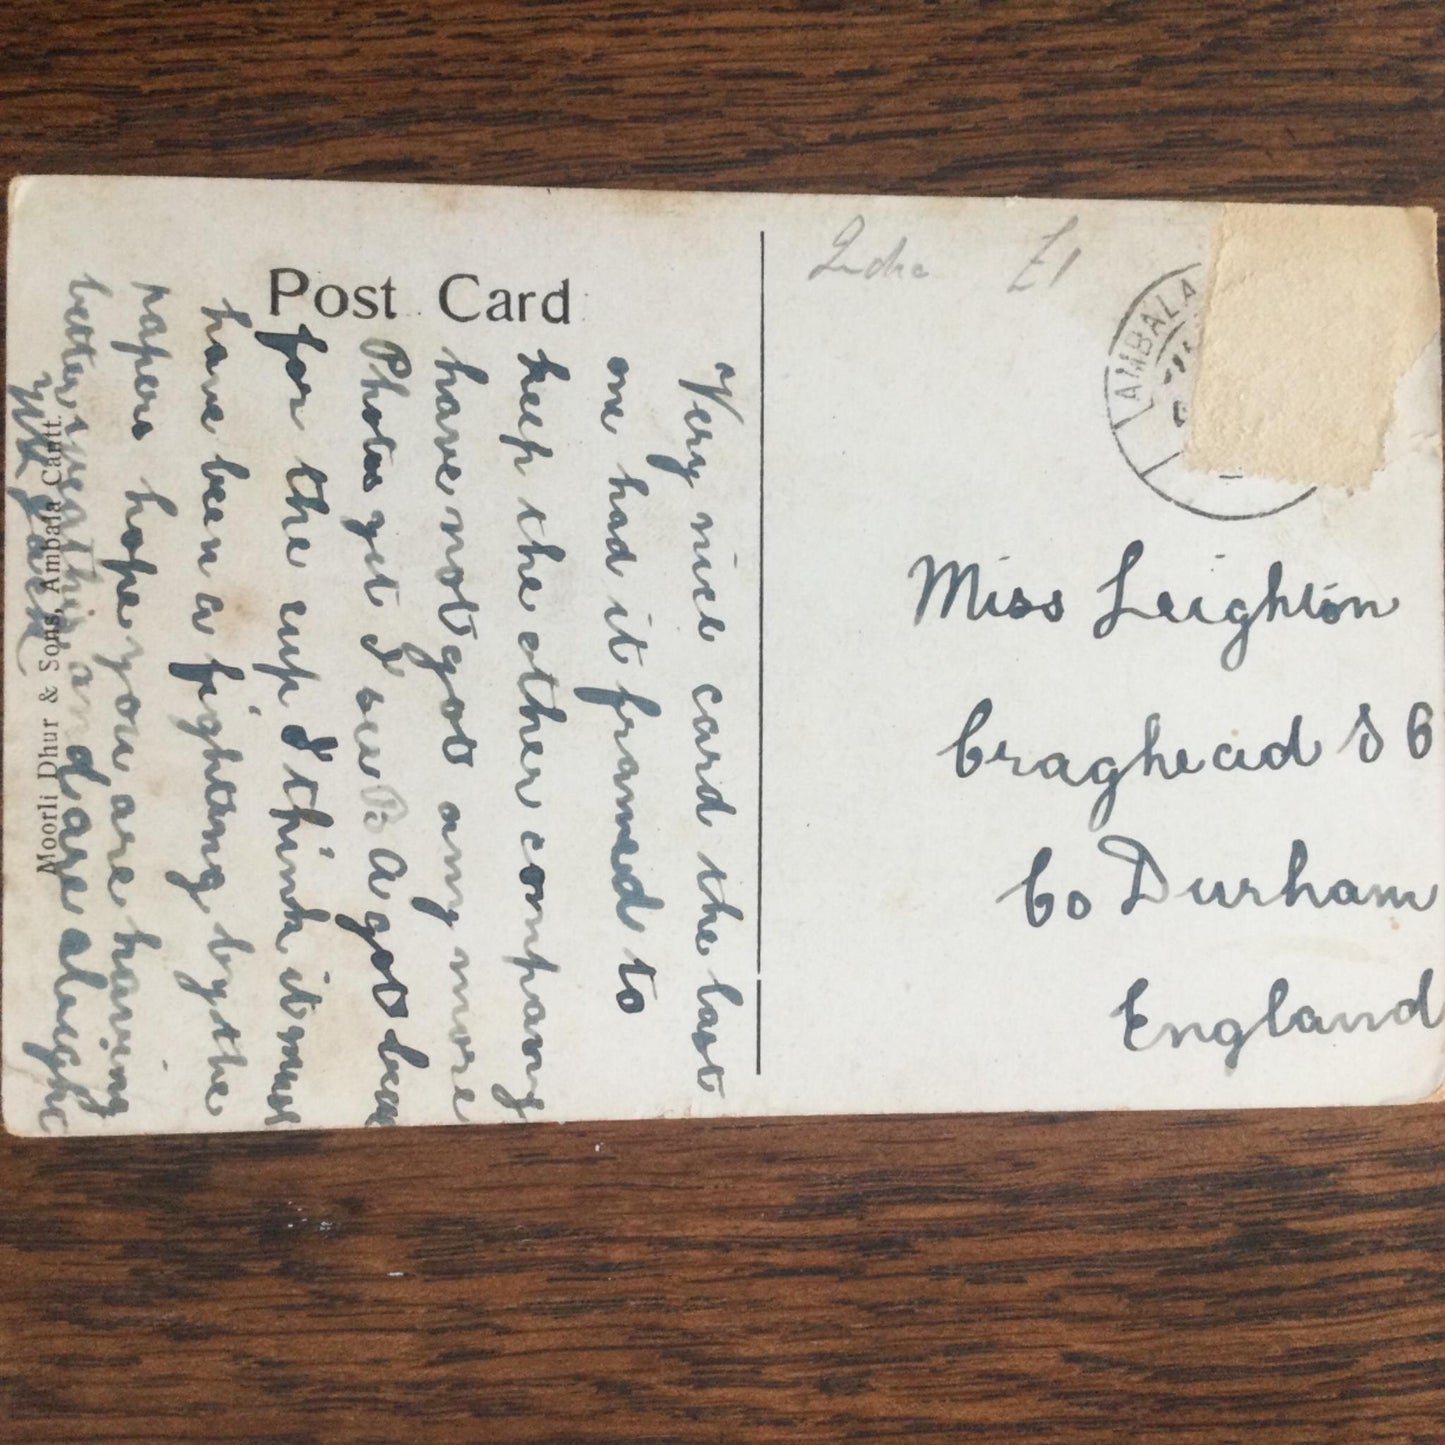 Post Card
India £1
AMBALA
Miss Leighton
Craghead S O
Co Durham
England
Very nice card the last
one had it framed to
keep the other company
have not got any more
Photos yet I see B. A got beat
for the cup I think it must
have been a fighting by the
papers hope you are having
better weather and are alright
Moorli Dhur & Sons, Ambala Cantt.